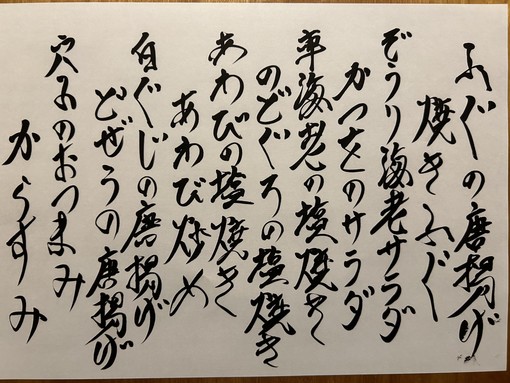 ふぐの唐揚げ
焼きふぐ
ぞうり海老サラダ
かつをのサラダ
車海老の塩焼き
のどぐろの塩焼き
あわびの塩焼き
あわび炒め
白ぐじの唐揚げ
どぜうの唐揚げ
穴子のおつまみ
からすみ